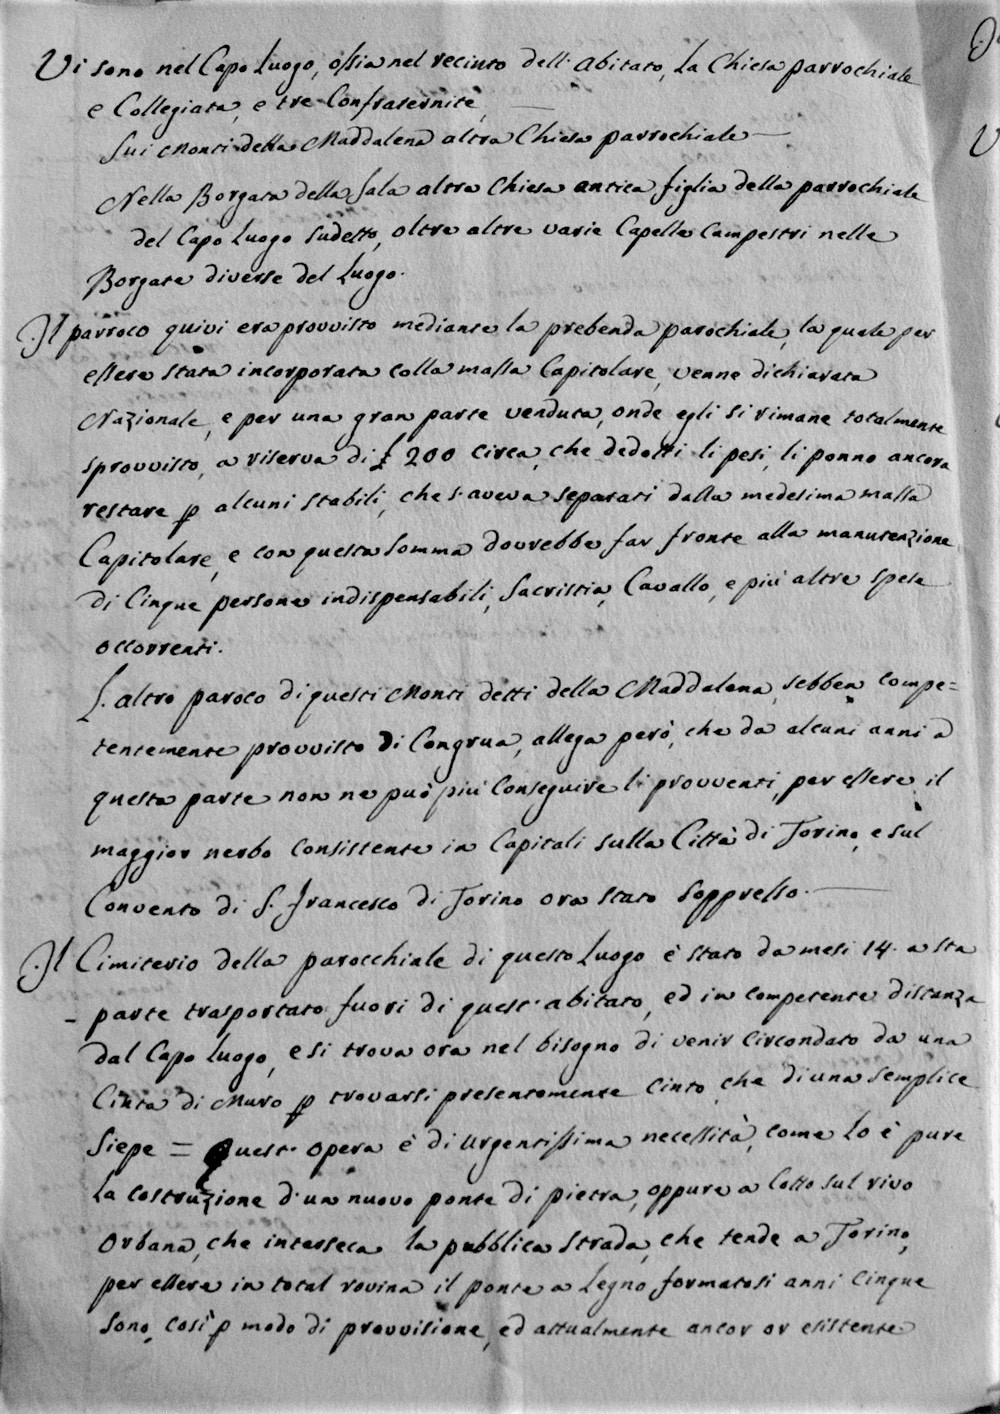 Vi sono nel Capo Luogo, ossia nel recinto dell'abitato, La Chiesa parrochiale
e Collegiata, e tre Confraternite,
Sui Monti della Maddalena altra Chiesa parrochiale
Nella Borgata della Sala altra Chiesa antica figlia della parrochiale
del Capo Luogo sudetto, oltre altre varie Capelle Campestri nelle
Borgate diverse del Luogo.
Il parroco quivi era provvisto mediante la prebenda parochiale, la quale per
essere stata incorporata colla massa Capitolare, venne dichiarata
Nazionale, e per una gran parte venduta, onde egli si rimane totalmente
sprovvisto, a riserva di £ 200 circa, che dedotti li pesi, li ponno ancora
restare p alcuni stabili, che s'aveva separati dalla medesima massa
Capitolare, e con questa somma dovrebbe far fronte alla manutenzione
di Cinque persone indispensabili, Sacristia, Cavallo, e più altre spese
occorrenti.
L'altro paroco di questi Monti detti della Maddalena, sebben compe=
tentemente provvisto di Congrua, allega però, che da alcuni anni a
questa parte non ne può più Conseguire li provventi, per essere il
maggior nerbo consistente in Capitali sulla Città di Torino, e sul
Convento di S. Francesco di Torino ora stato soppresso.
Il Cimiterio della parocchiale di questo Luogo è stato da mesi 14. a sta
- parte trasportato fuori di quest'abitato, ed in competente distanza
dal Capo Luogo, e si trova ora nel bisogno di venir Circondato da una
Cinta di Muro p trovarsi presentemente cinto, che di una semplice
siepe = Quest'opera è di urgentissima necessità, come lo è pure
La costruzione d'un nuovo ponte di pietra, oppure a Cotto sul rivo
Orbana, che interseca la pubblica strada, che tende a Torino,
per essere in total rovina il ponte a Legno formatosi anni Cinque
sono, così p modo di provvisione, ed attualmente ancor or esistente